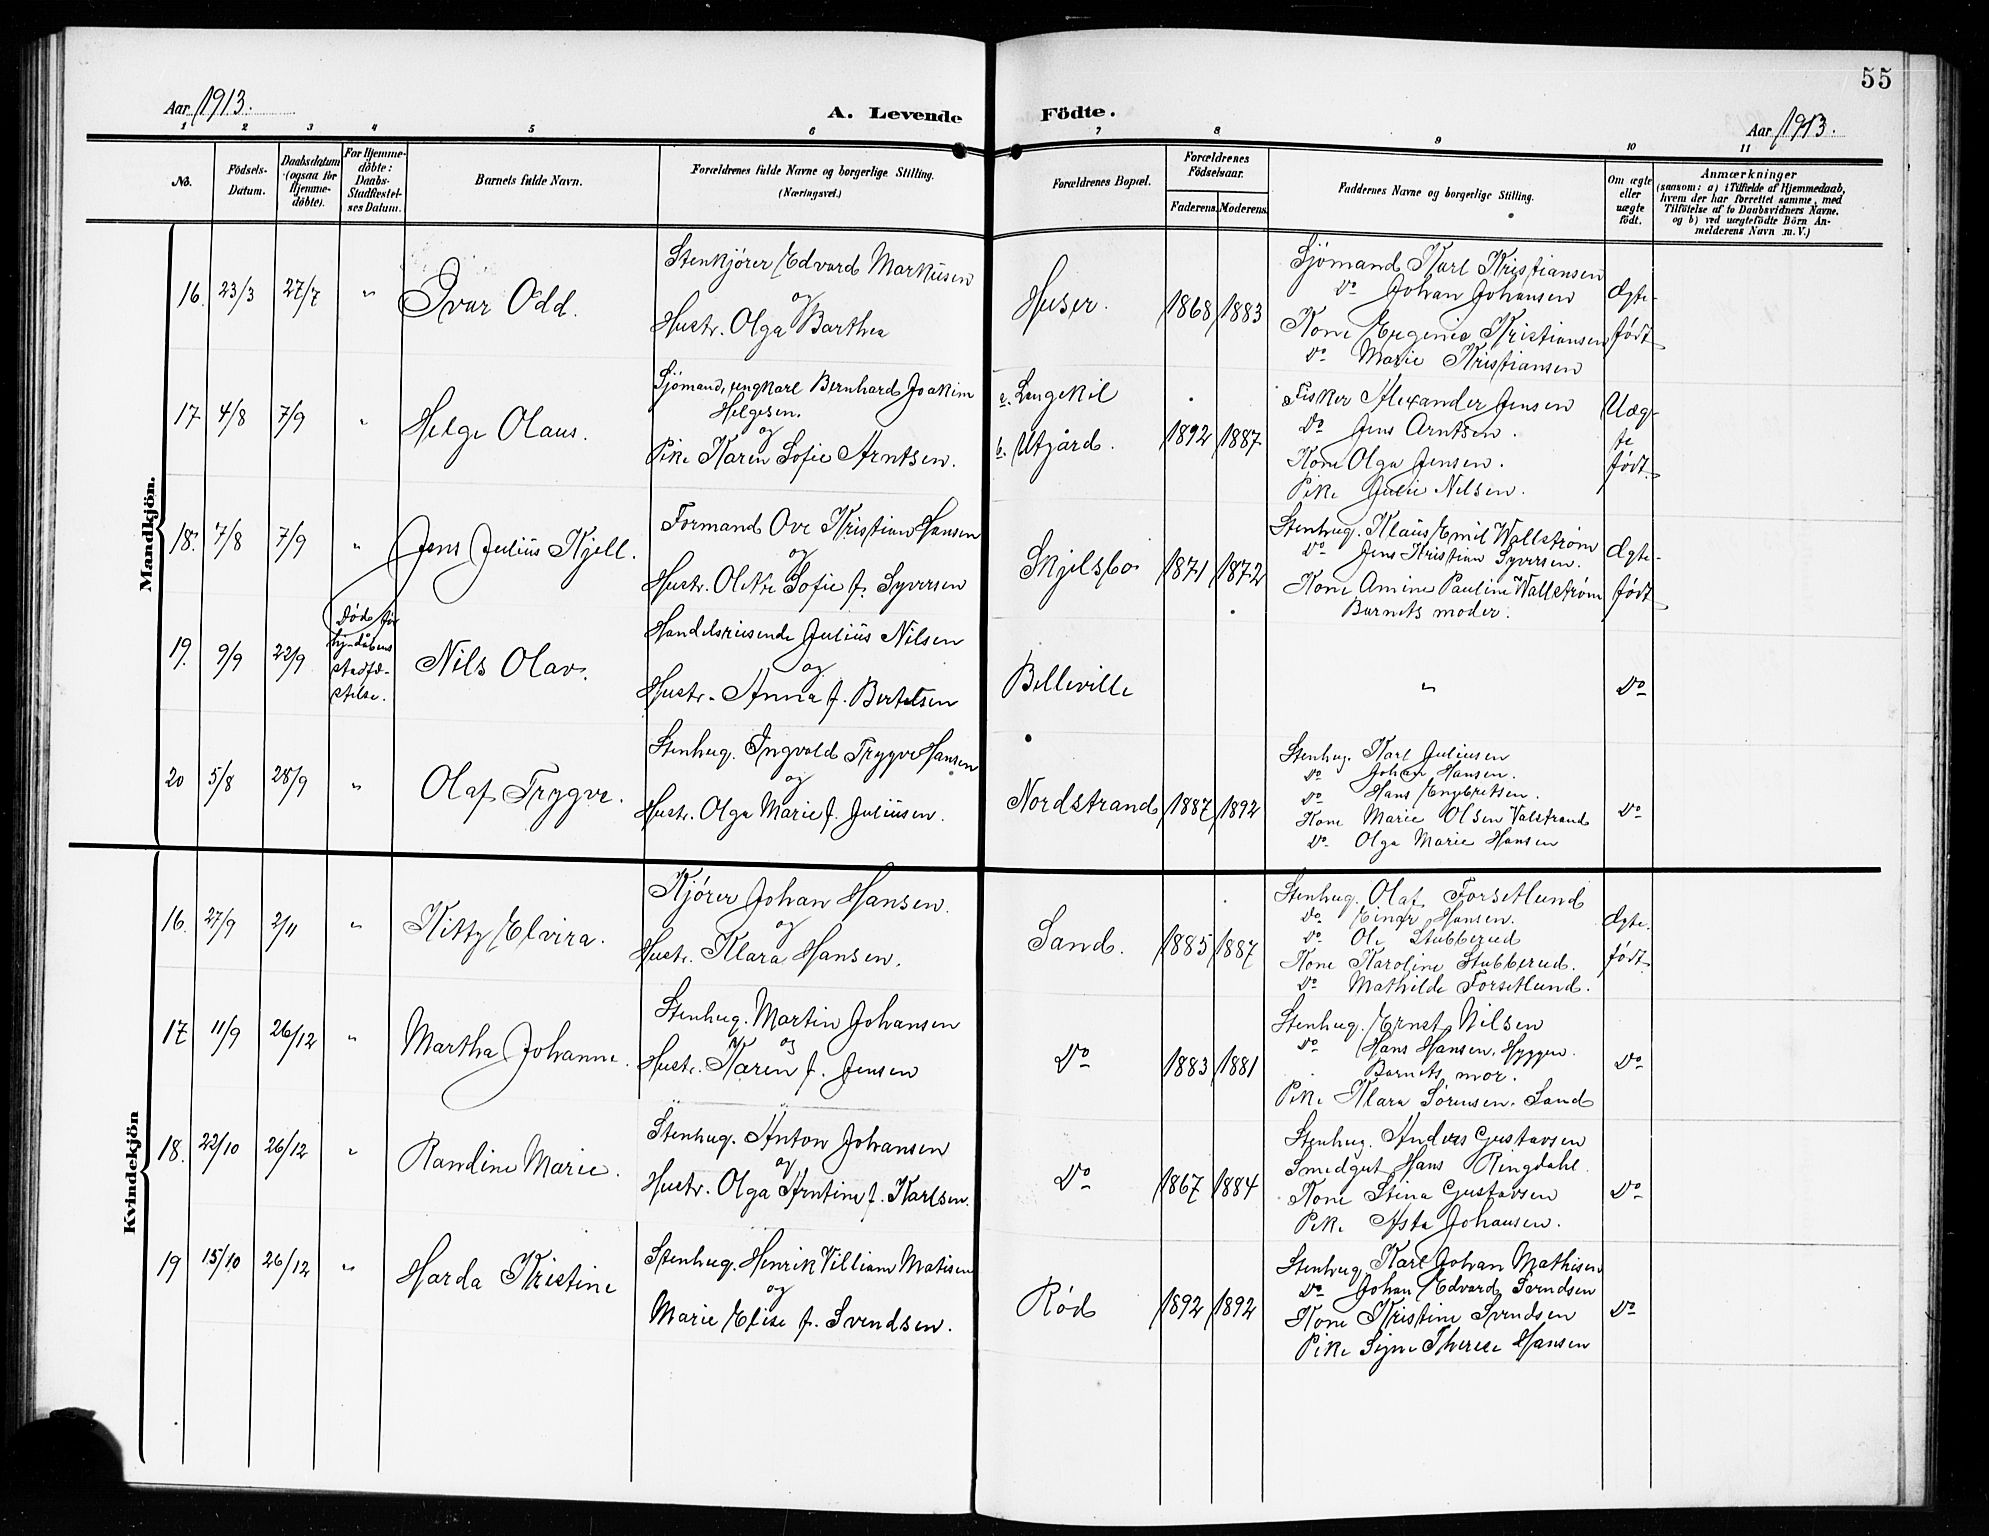 55
Aar 1913.
A. Levende Födte.
Aar 1913.
1 2 3 4 5 6 7 8 9 10 11
No.
Födsels-
Datum.
Daabsdatum
(ogsaa for
Hjemme-
döbte).
For Hjemme-
döbte:
Daabs-
Stadfæstel-
ses Datum.
Barnets fulde Navn.
Forældrenes fulde Navne og borgerlige Stilling.
(Næringsvei.)
Forældrenes Bopæl.
Forældrenes
Födselsaar.
Faderens. Moderens.
Faddernes Navne og borgerlige Stilling.
Om ægte
eller
uægte
födt.
Anmærkninger
(saasom: a) i Tilfælde af Hjemmedaab,
hvem der har forrettet samme, med
Tilföielse af to Daabsvidners Navne,
og b) ved uægtefödte Börn An-
melderens Navn m. V.)
Mandkjön.
16. 23/3 27/7 " Ivar Odd.
Stenkjører Edvard Markusen
og
Hustr. Olga Barthea
Huser. 1868 1883
Sjømand Karl Kristiansen
Do Johan Johansen
Kone Eugenie Kristiansen
Do Marie Kristiansen
Ægte-
født
17 4/8 7/9 " Helge Olaus.
Sjømand, ungkarl Bernhard Joakim
Helgesen.
og
Pike Karen Sofie Arntsen.
a. Langekil
b. Utgård. 1892 1887
Fisker Alexander Jensen
Do Jens Arntsen.
Kone Olga Jensen.
Pike Julie Nilsen.
Uæg-
te
født.
18. 7/8 7/9 " Jens Julius Kjell.
Formand Ove Kristian Hansen
og
Hustr. Olette Sofie f. Syversen
Skjelsbo 1871 1872
Stenhug. Klaus Emil Wallstrøm
Do Jens Kristian Syversen.
Kone Amine Pauline Wallstrøm
Barnets moder.
Ægte-
født
19. 9/9 22/9
Døde før
stadfæ-
stelse.
Nils Olav.
Handelsreisende Julius Nilsen
og
Hustr. Anna f. Bertelsen
Belleville
" Do
20 5/8 28/9 " Olaf Trygve.
Stenhug. Ingvald Trygve Hansen
og
Hustr. Olga Marie f. Juliusen.
Nordstrand 1887 1892
Stenhug. Karl Juliusen
Do Johan Hansen.
Do Hans Engebretsen.
Kone Marie Olsen Valstrand
Do Olga Marie Hansen
Do
Kvindekjön
16. 27/9 2/11 " Kitty Elvira.
Kjører Johan Hansen.
og
Hustr. Klara Hansen.
Sand. 1885 1887
Stenhug. Olaf Forsetlund
Do Einar Hansen.
Do Ole Stubberud
Kone Karoline Stubberud.
Do Mathilde Forsetlund.
Ægte-
født.
17 11/9 26/12 " Martha Johanne.
Stenhug. Martin Johansen
og
Hustr. Karen f. Jensen
Do 1883 1881
Stenhug. Ernst Nilsen
Do Hans Hansen, Hyggen.
Barnets mor.
Pike Klara Sørensen. Sand
Do
18. 22/10 26/12 " Randine Marie.
Stenhug. Anton Johansen
og
Hustr. Olga Arntine f. Karlsen.
Do 1867 1884
Stenhug. Anders Gustavsen
Smedgut Hans Ringdahl.
Kone Stina Gustavsen
Pike Asta Johansen.
Do
19 15/10 26/12 " Harda Kristine
Stenhug. Henrik Villiam Matisen
og
Marie Elise f. Svendsen.
Rød 1892 1892
Stenhug. Karl Johan Mathisen
Do Johan Edvard Svendsen
Kone Kristine Svendsen
Pike Signe Therese Hansen
Do